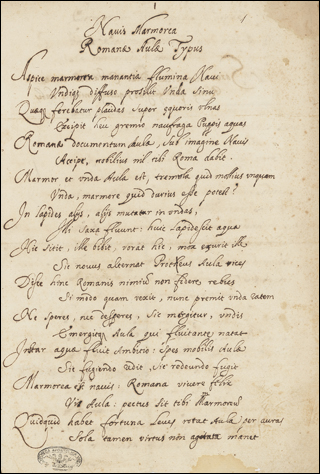 Nauis Marmorea
Romanæ Aulæ Typus
Aspice marmorea manantia flumina Naui
Vndiq; diffuso prosilit Vnda Sinu
Quæq; ferebatur plaudas super æquoris vlnas
Excipit heu gremio naufraga Puppis aquas
Romanæ documentum Aulæ, sub imagine Nauis
Accipe, nobilius nil tibi Roma dabit.
Marmor et vnda Aula est, tremula quid mobilius vnquam
Vnda, marmore quid durius esse potest?
In lapides alijs, alijs mutatur in vndas,
Hi saxa fluunt: huic lapidescit aqua
Hic sitit, ille bibit, rorat hic, mox exurit ille
Sic nouus alternat Protheus Aula vices
Disce hinc Romanis nimium non fidere rebus
Si modo quam vexit, nunc premit vnda ratem
Ne speres, nec desperes, sic mergitur, vndis
Emergitq; Aula qui fluitante, natat
Instar aquæ fluit Ambitio: Spes mobilis Aulæ
Sic fugiendo redit, sic redeundo fugit
Marmorea est nauis: Romana viuere
Vis Aula: pectus sit tibi Marmoreum
Quidquid habet fortuna leues rotat Aula per auras
Sola tamen virtus non agitata manet